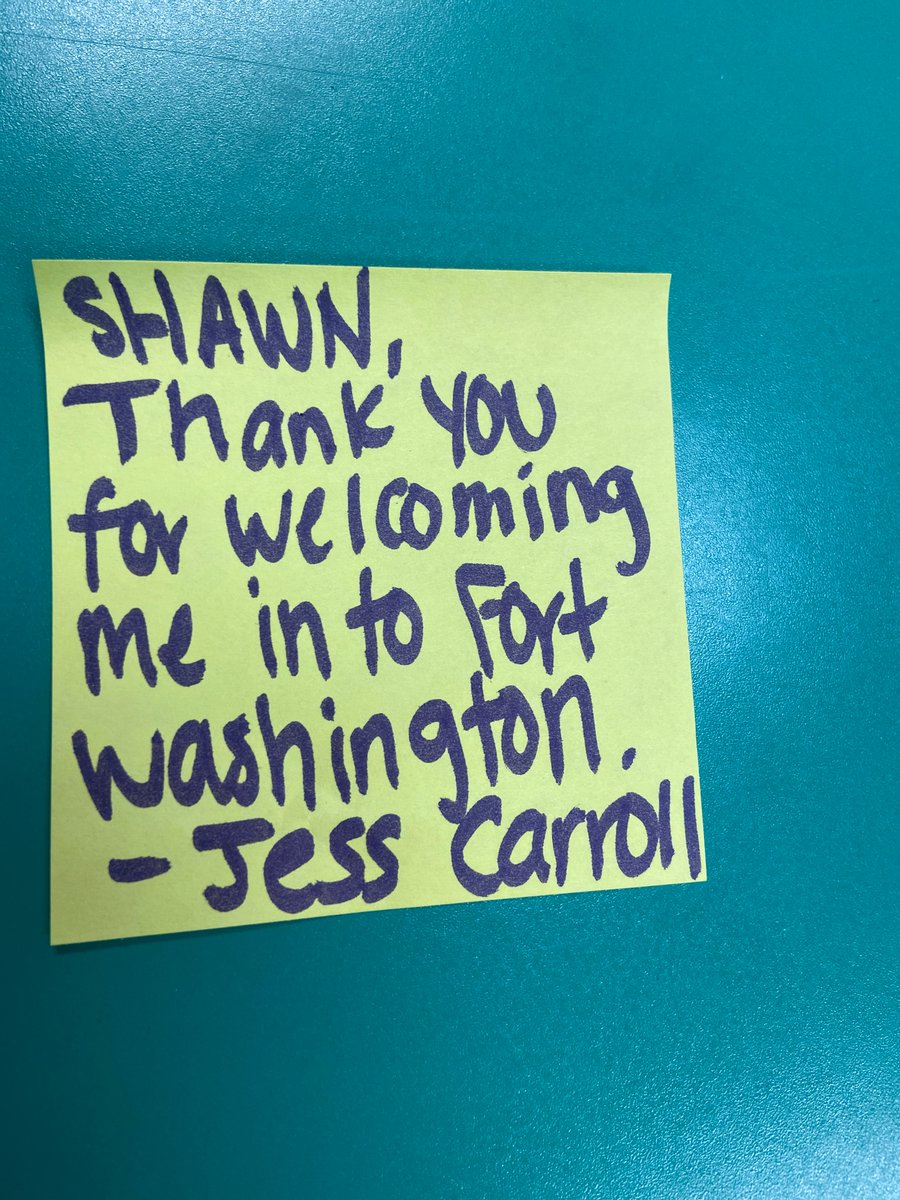 SHAWN,
Thank you
for welcoming
me in to Fort
washington.
- Jess Carroll